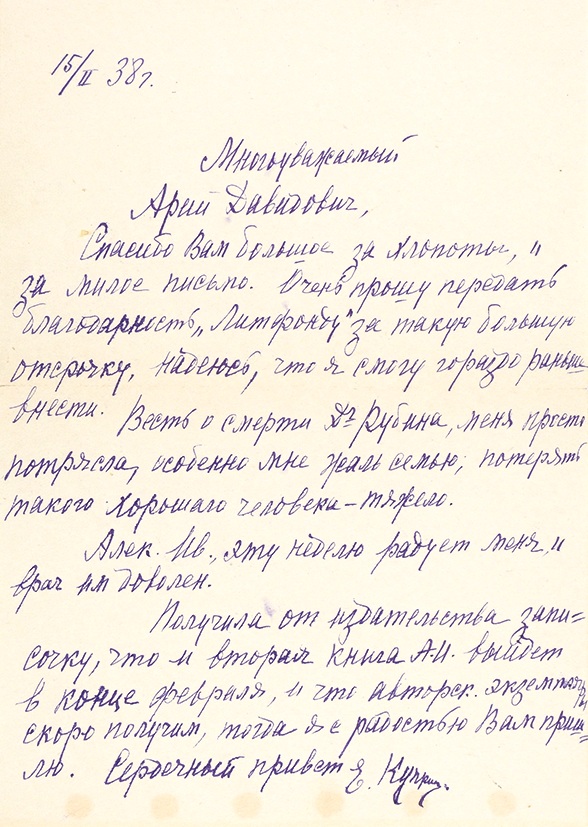 15/II 38 г.
Многоуважаемый
Арий Давидович,
Спасибо Вам большое за хлопоты, и
за милое письмо. Очень прошу передать
благодарность, „Литфонду" за такую большую
отсрочку, надеюсь, что я смогу гораздо раньше
внести. Весть о смерти Дг Рубина, меня просто
потрясла, особенно мне жаль семью, потерять
такого хорошаго человека – тяжело.
Алек. Ив., эту неделю радует меня, и
врач им доволен.
Получила от издательства запи-
сочку, что и вторая книга А.И. выйдет
в конце февраля, и что авторск. экземпляры
скоро получим, тогда я с радостью Вам приш-
лю. Сердечный привет Е. Куприн.